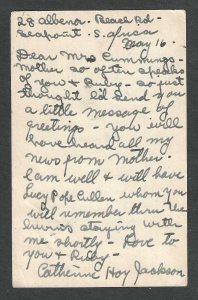 28 Albena. Beach Rd-
Seapoint - S. africa
May 16.
Dear Mrs Cummings-
Mother so often speaks
of you & Ruby - so just
thought I'd send you
a little message of
greetings - you will
have heard all my
news from Mother.
I am well & will have
Lucy Pope Cullen whom you
will remember thru the
staying with
me shortly - Love to
you & Ruby -
Catherine Hoy Jackson